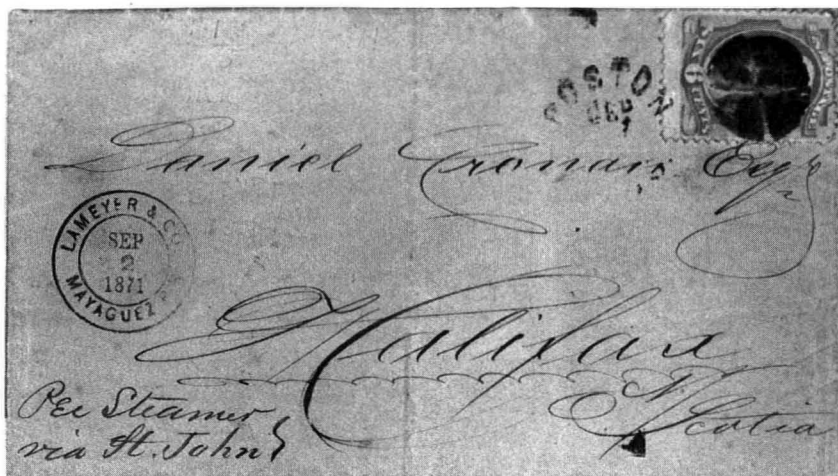 BOSTON
Daniel Cronan Esqr
LAMEYER & CO
SEP
2
1871
MAYAGUEZ
Halifax
N. Scotia
Per Steamer
via St. John